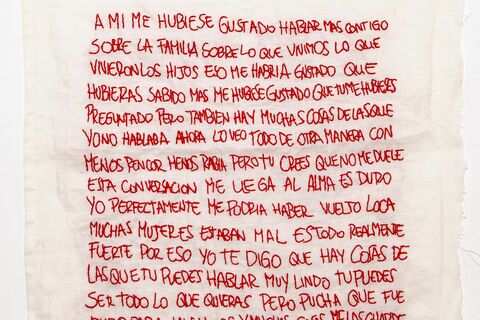 A MI ME HUBIESE GUSTADO HABLAR MAS CONTIGO
SOBRE LA FAMILIA SOBRE LO QUE VIVIMOS LO QUE
VIVIERON LOS HIJOS ESO ME HABRIA GUSTADO QUE
HUBIERAS SABIDO MAS ME HUBIESE GUSTADO QUE TU ME HUBIERES
PREGUNTADO PERO TAMBIEN HAY MUCHAS COSAS DE LAS QUE
YO NO HABLABA AHORA LO VEO TODO DE OTRA MANERA CON
MENOS RENCOR MENOS RABIA PERO TU CREES QUE NO ME DUELE
ESTA CONVERSACION ME LLEGA AL ALMA ES DURO
YO PERFECTAMENTE ME PODRIA HABER VUELTO LOCA
MUCHAS MUJERES ESTABAN MAL ES TODO REALMENTE
FUERTE POR ESO YO TE DIGO QUE HAY COSAS DE
LAS QUE TU PUEDES HABLAR MUY LINDO TU PUEDES
SER TODO LO QUE QUIERAS PERO PUCHA QUE FUE